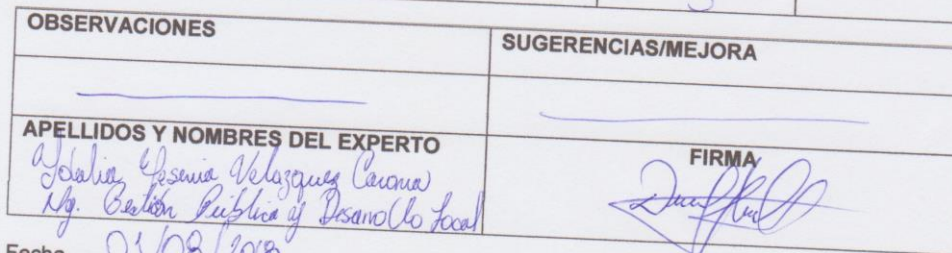 OBSERVACIONES
SUGERENCIAS/MEJORA
APELLIDOS Y NOMBRES DEL EXPERTO
Idalia Yesenia Velazquez
Mg. Gestión Pública y Desarrollo Local
FIRMA
Fecha